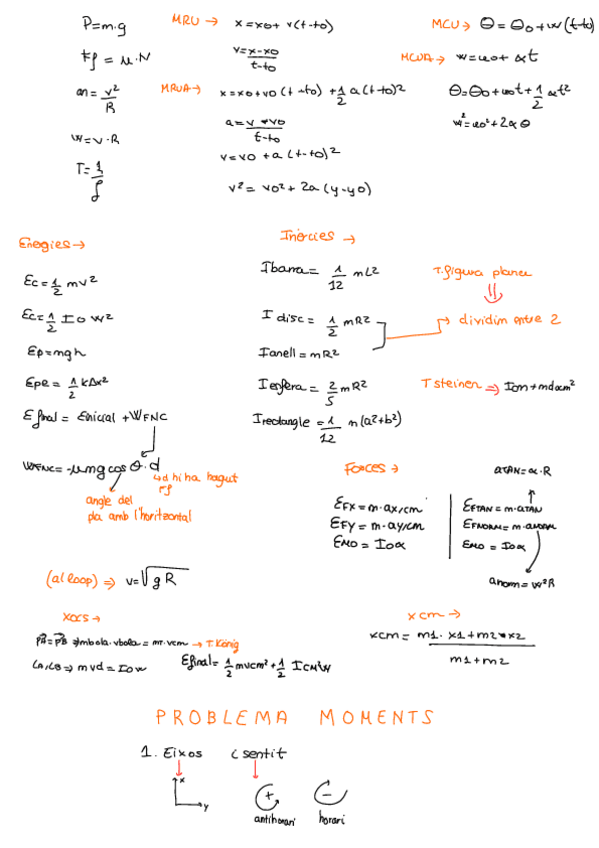 P=m.g
Ff = u.N
an = v²/R
w=v.R
T=1/f
MRU → x=xo+ v(t-to)
v=x-xo/t-to
MRUA→ x=xo+vo(t-to)+1/2 a(t-to)²
a=v-vo/t-to
v=vo+a(t-to)²
v²= vo²+2a(y-yo)
MCU→ Θ=Θo+w(t-to)
MCUA→ w=wo+αt
Θ=Θo+wot+1/2 αt²
w²=wo²+2αΘ
Enegies→
Ec=1/2 mv²
Ec=1/2 Io w²
Ep=mgh
Epe=1/2 kΔx²
Efinal = Einicial +WFNC
WFNC=-umgcosΘ.d
↳d hi ha hagut Ff
angle del
pla amb l'horitzontal
Inèrcies →
Ibarra= 1/12 mL²
I disc= 1/2 mR²
Ianell=mR²
Iesfera=2/5 mR²
Irectangle=1/12 m(a²+b²)
T.figura plana
⇓
→ dividim entre 2
T steiner ⇒ Icm+mdocm²
Forces→
ΣFX=m.ax/cm
ΣFY=m.ay/cm
ΣMO=Ioα
aTAN=α.R
ΣFTAN=m.aTAN
ΣFNORM=m.anorm
ΣMO=Ioα
anorm=w²R
(al loop)⇒ v=√gR
xocs→
PA=PB mbola.vbola=mT.vcm → T.König
LA,LB⇒mvd=Iow
Efinal=1/2 mvcm²+1/2 ICM²w
xcm→
xcm= m1.x1+m2•x2/m1+m2
PROBLEMA MOMENTS
1. Eixos i sentit
x
y
+
-
antihorari
horari